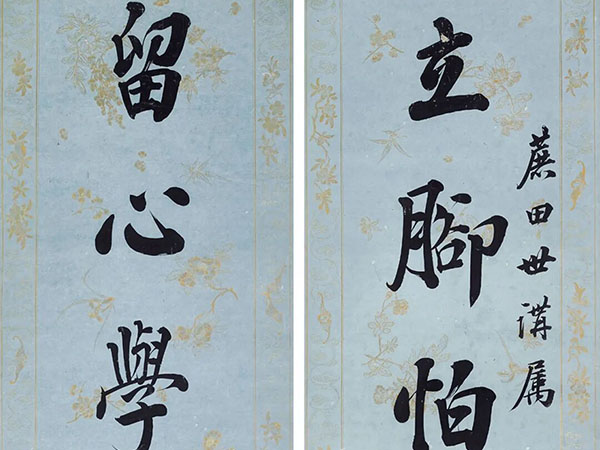 蔗田世講属
立腳怕
留心學